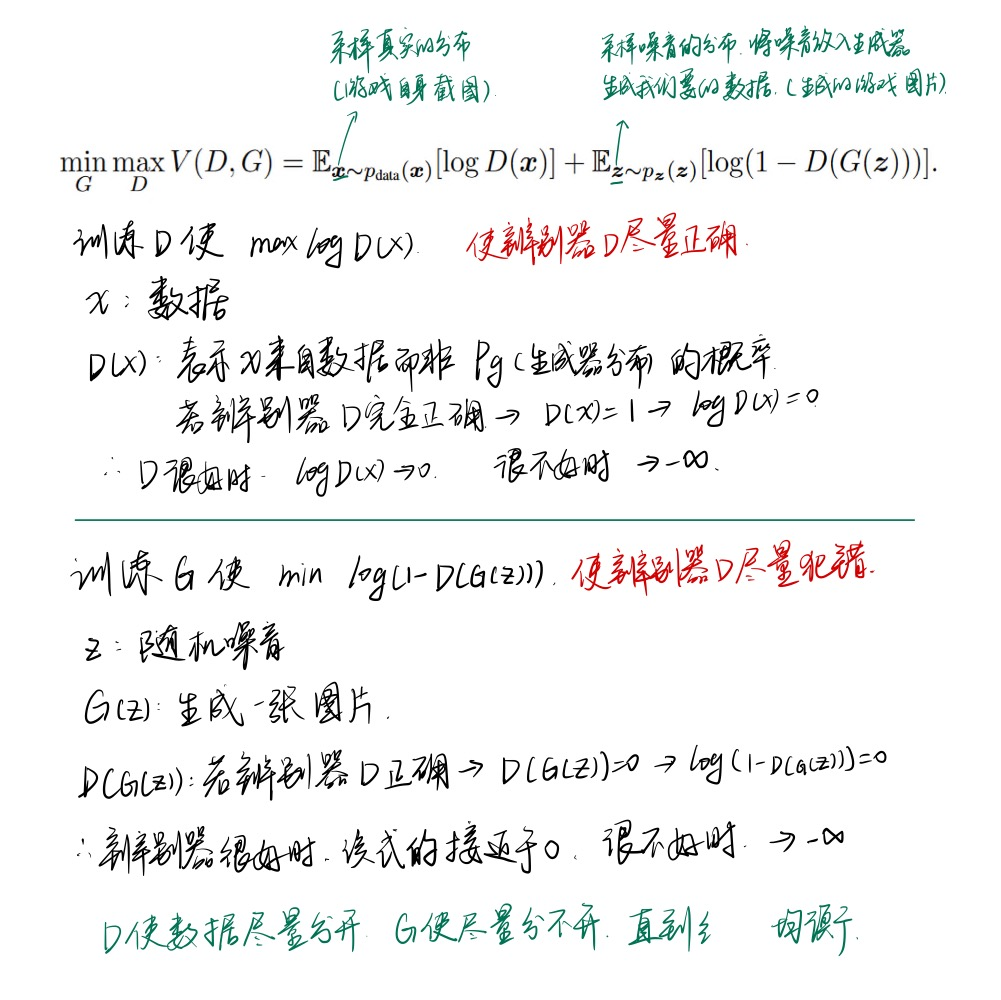 采样真实的分布
(游戏自身截图).
采样噪音的分布.将噪音放入生成器
生成我们要的数据.(生成的游戏图片)
min_G max_D V(D, G) = 𝔼_{x∼p_data(x)}[log D(x)] + 𝔼_{z∼p_z(z)}[log(1 − D(G(z)))].
训练D使 max log D(x). 使辨别器D尽量正确.
x:数据
D(x):表示x来自数据而非 Pg(生成器分布)的概率.
若辨别器D完全正确→ D(x)=1→ log D(x)=0
∴ D很好时. log D(x)→0. 很不好时 →-∞.
训练G使 min log(1-D(G(z))). 使辨别器D尽量犯错.
z:随机噪音
G(z):生成一张图片.
D(G(z)):若辨别器D正确→ D(G(z))=0 → log(1-D(G(z)))=0
∴辨别器很好时.该式的接近于0. 很不好时. →-∞
D使数据尽量分开. G使尽量分不开. 直到